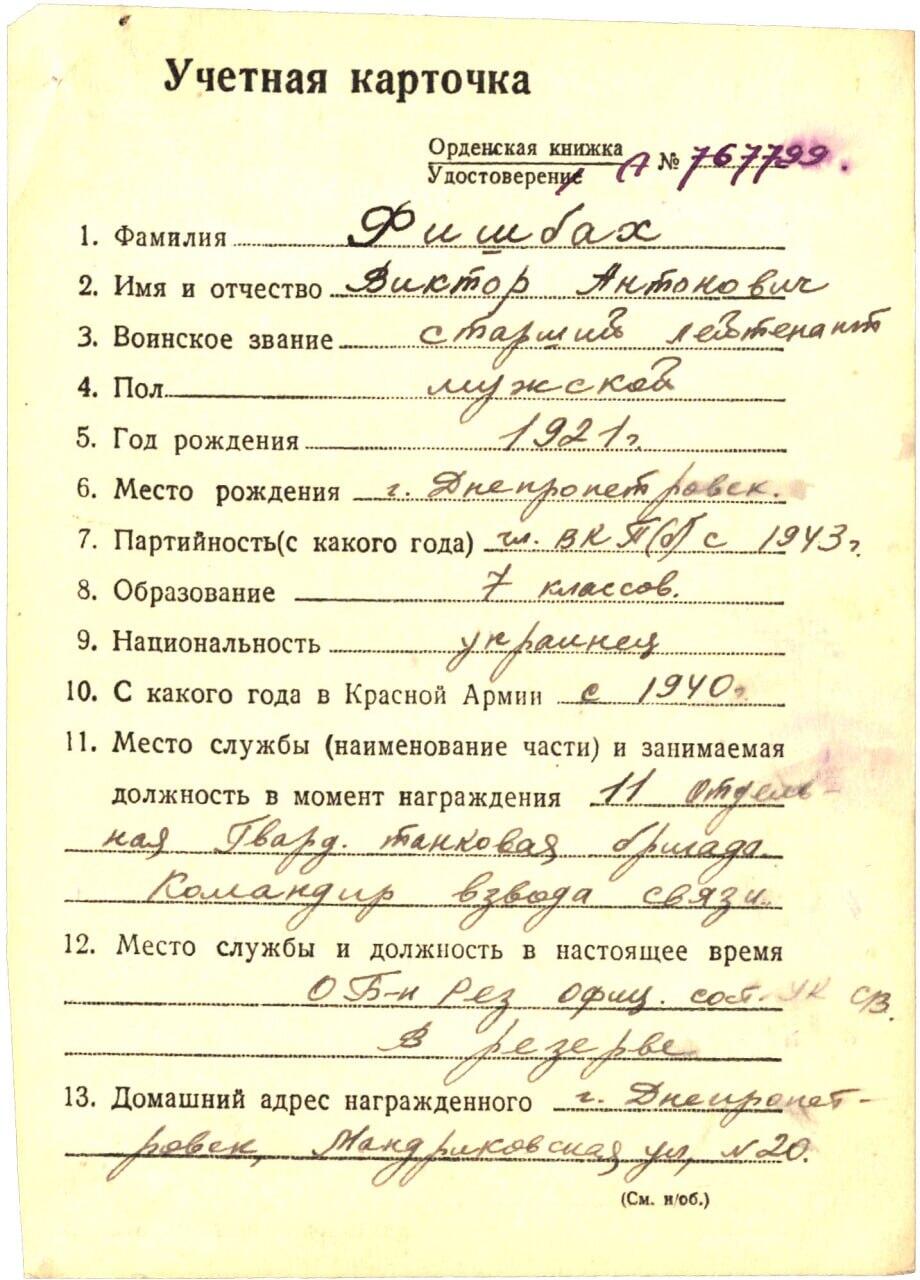 Учетная карточка
Орденская книжка
Удостоверение А № 767799.
1. Фамилия Фишбах
2. Имя и отчество Виктор Антонович
3. Воинское звание старший лейтенант
4. Пол мужской
5. Год рождения 1921 г.
6. Место рождения г. Днепропетровск.
7. Партийность(с какого года) чл. ВКП(б) с 1943 г.
8. Образование 7 классов.
9. Национальность украинец
10. С какого года в Красной Армии с 1940 г.
11. Место службы (наименование части) и занимаемая
должность в момент награждения 11 отдель-
ная Гвард. танковая бригада
Командир взвода связи.
12. Место службы и должность в настоящее время
ОБ-н Рез офиц. сост. УК СВ.
В резерве
13. Домашний адрес награжденного г. Днепропет-
ровск, Мандриковская ул, N 20.
(См. н/об.)